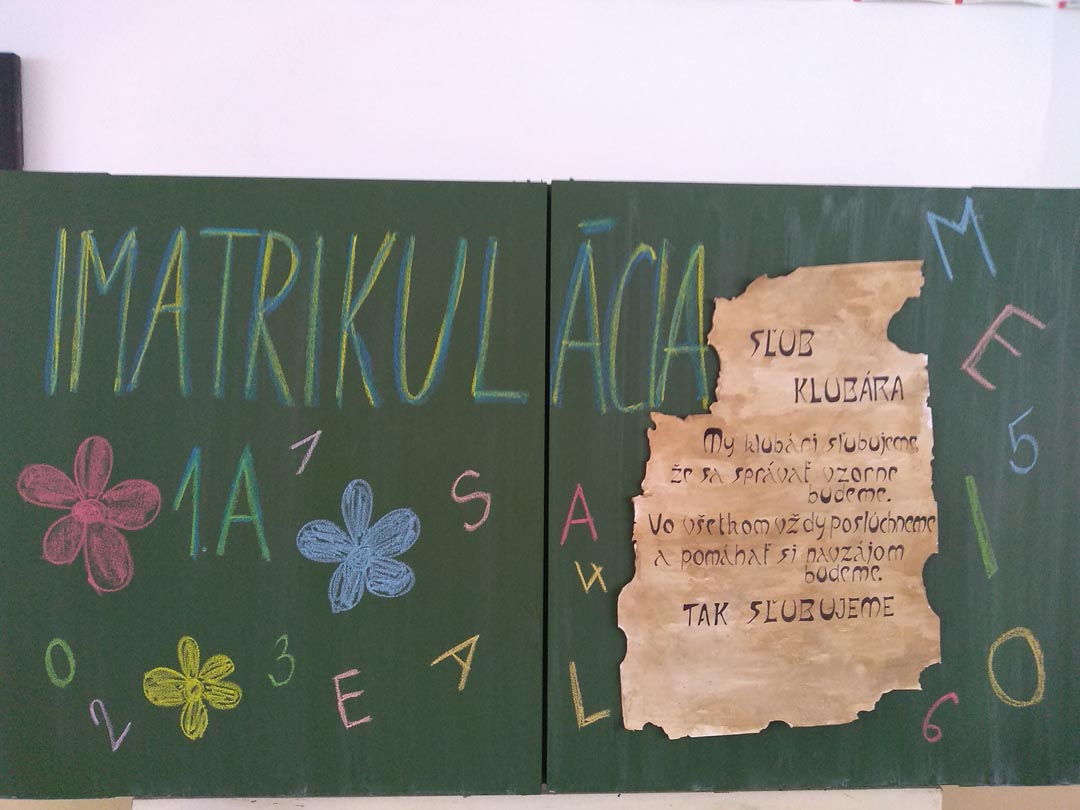 IMATRIKULÁCIA
1.A
1
S
0
2
3
E
A
A
4
L
SĽUB
KLUBÁRA
My klubári sľubujeme,
že sa správať vzorne
budeme.
Vo všetkom vždy poslúchneme
a pomáhať si navzájom
budeme.
TAK SĽUBUJEME
M
E
5
I
O
6